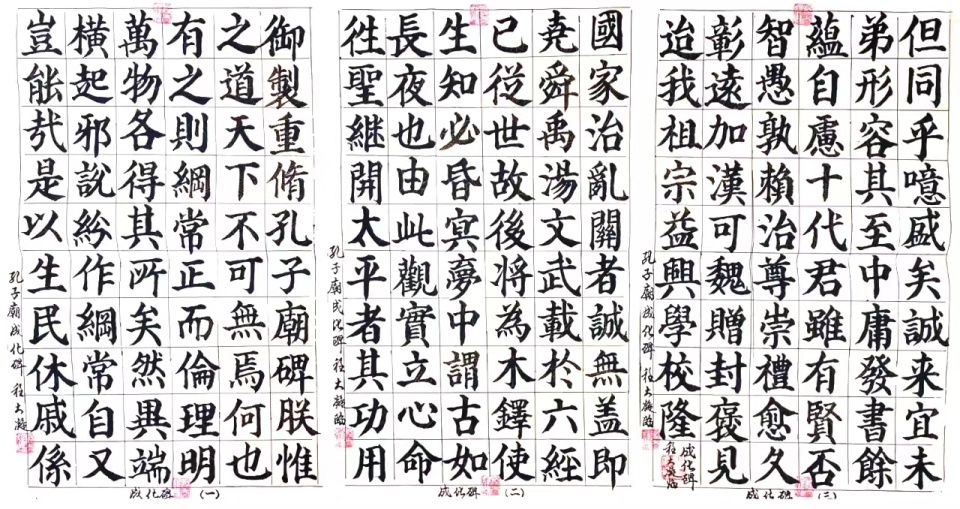 御製重脩孔子廟碑朕惟
之道天下不可無焉何也
有之則綱常正而倫理明
萬物各得其所矣然異端
橫起邪說紛作綱常自又
豈能㢤是以生民休戚係
孔子廟成化碑 程大凝
成化碑 (一)
國家治亂關者誠無盖即
堯舜禹湯文武載於六經
已從世故後將為木鐸使
生知必昏冥夢中謂古如
長夜也由此觀實立心命
徃聖継開太平者其功用
孔子廟成化碑 程大凝臨
成化碑 (二)
但同乎噫戚矣誠来宜未
弟形容其至中庸發書餘
蘊自慮十代君雖有賢否
智愚孰賴治尊崇禮愈久
彰遠加漢可魏贈封褒見
迨我祖宗益興學校隆
成化碑
程大凝臨
孔子廟成化碑 程大凝臨
成化碑 (三)